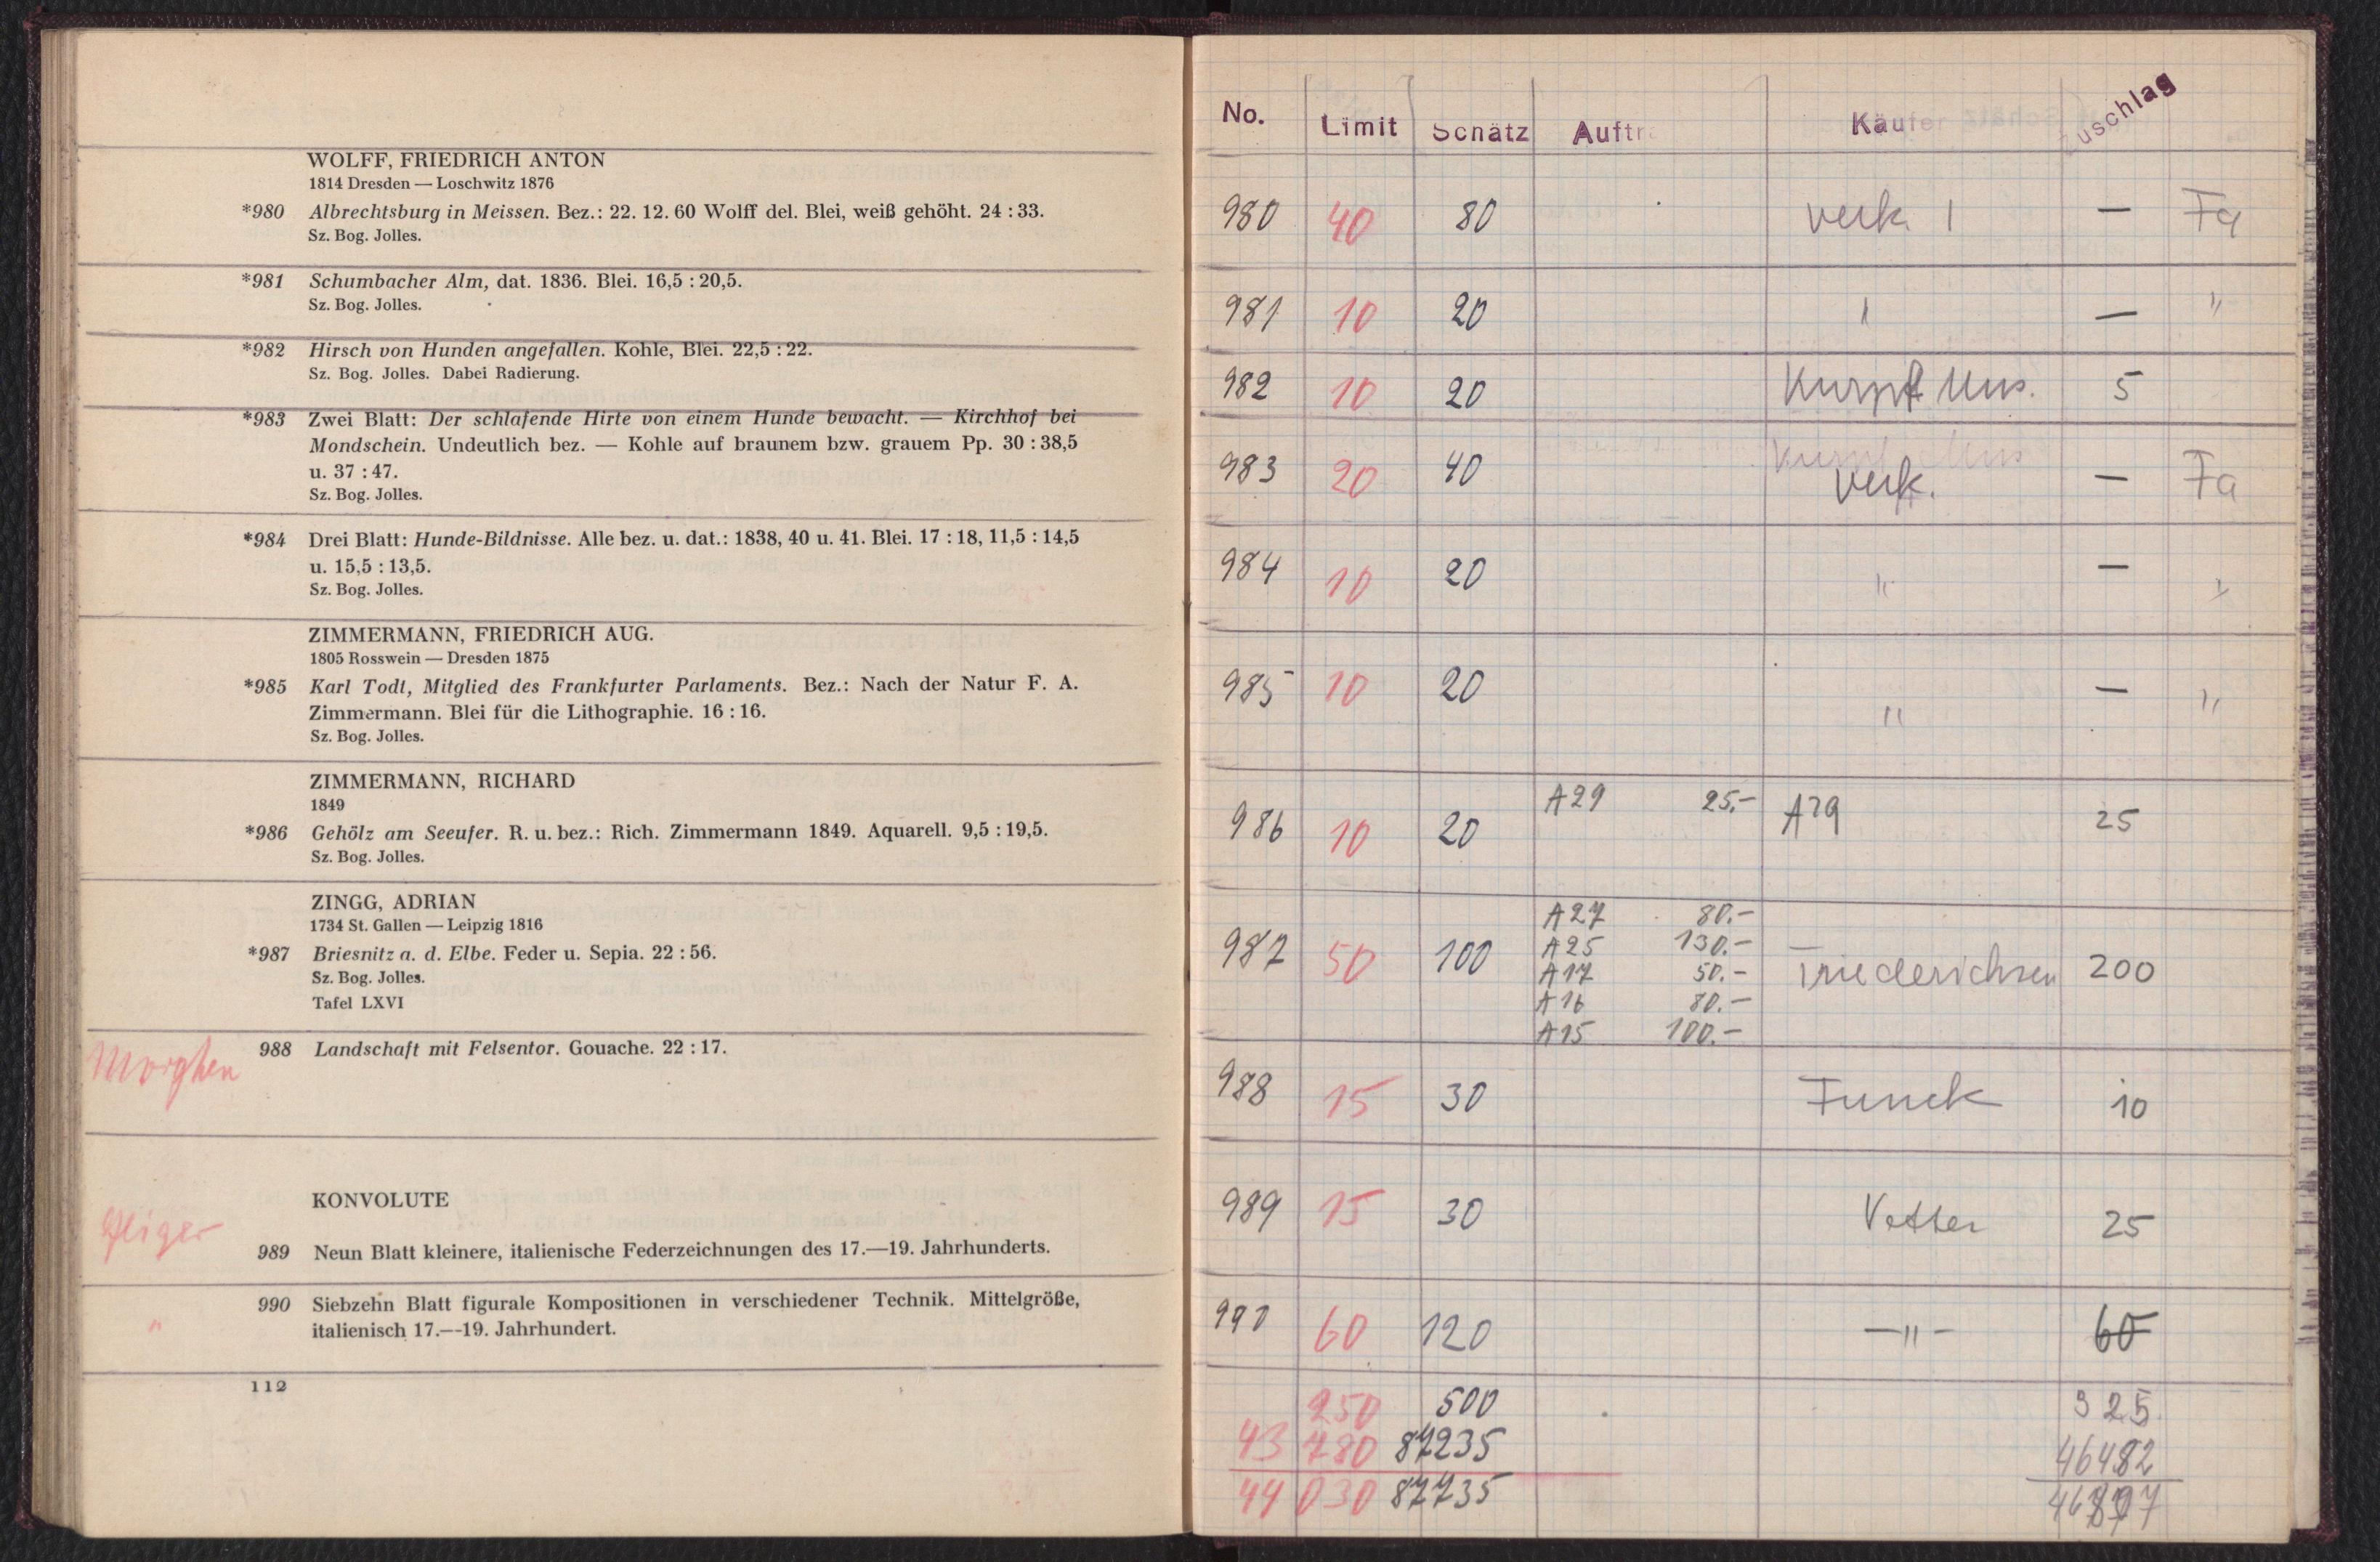 WOLFF, FRIEDRICH ANTON
1814 Dresden — Loschwitz 1876
*980 Albrechtsburg in Meissen. Bez.: 22. 12. 60 Wolff del. Blei, weiß gehöht. 24 : 33.
Sz. Bog. Jolles.
*981 Schumbacher Alm, dat. 1836. Blei. 16,5 : 20,5.
Sz. Bog. Jolles.
*982 Hirsch von Hunden angefallen. Kohle, Blei. 22,5 : 22.
Sz. Bog. Jolles. Dabei Radierung.
*983 Zwei Blatt: Der schlafende Hirte von einem Hunde bewacht. — Kirchhof bei
Mondschein. Undeutlich bez. — Kohle auf braunem bzw. grauem Pp. 30 : 38,5
u. 37 : 47.
Sz. Bog. Jolles.
*984 Drei Blatt: Hunde-Bildnisse. Alle bez. u. dat.: 1838, 40 u. 41. Blei. 17 : 18, 11,5 : 14,5
u. 15,5 : 13,5.
Sz. Bog. Jolles.
ZIMMERMANN, FRIEDRICH AUG.
1805 Rosswein — Dresden 1875
*985 Karl Todt, Mitglied des Frankfurter Parlaments. Bez.: Nach der Natur F. A.
Zimmermann. Blei für die Lithographie. 16 : 16.
Sz. Bog. Jolles.
ZIMMERMANN, RICHARD
1849
*986 Gehölz am Seeufer. R. u. bez.: Rich. Zimmermann 1849. Aquarell. 9,5 : 19,5.
Sz. Bog. Jolles.
ZINGG, ADRIAN
1734 St. Gallen — Leipzig 1816
*987 Briesnitz a. d. Elbe. Feder u. Sepia. 22 : 56.
Sz. Bog. Jolles.
Tafel LXVI
Morghen 988 Landschaft mit Felsentor. Gouache. 22 : 17.
KONVOLUTE
989 Neun Blatt kleinere, italienische Federzeichnungen des 17.—19. Jahrhunderts.
" 990 Siebzehn Blatt figurale Kompositionen in verschiedener Technik. Mittelgröße,
italienisch 17.—19. Jahrhundert.
112
No. Limit Schätz Auftr Käufer Zuschlag
980 40 80 verk. — Fa
981 10 20 — "
982 10 20 Kurpf. Mus. 5
983 20 40 Kurpf. Mus
verk. — Fa
984 10 20 " — "
985 10 20 " — "
986 10 20 A29 25.- A29 25
987 50 100 A27 80.- Friederichsen 200
A25 130.-
A17 50.-
A16 80.-
A15 100.-
988 15 30 Funck 10
989 15 30 Vetter 25
990 60 120 —"— 60
250 500 325
43 780 87235 46482
44 030 87735